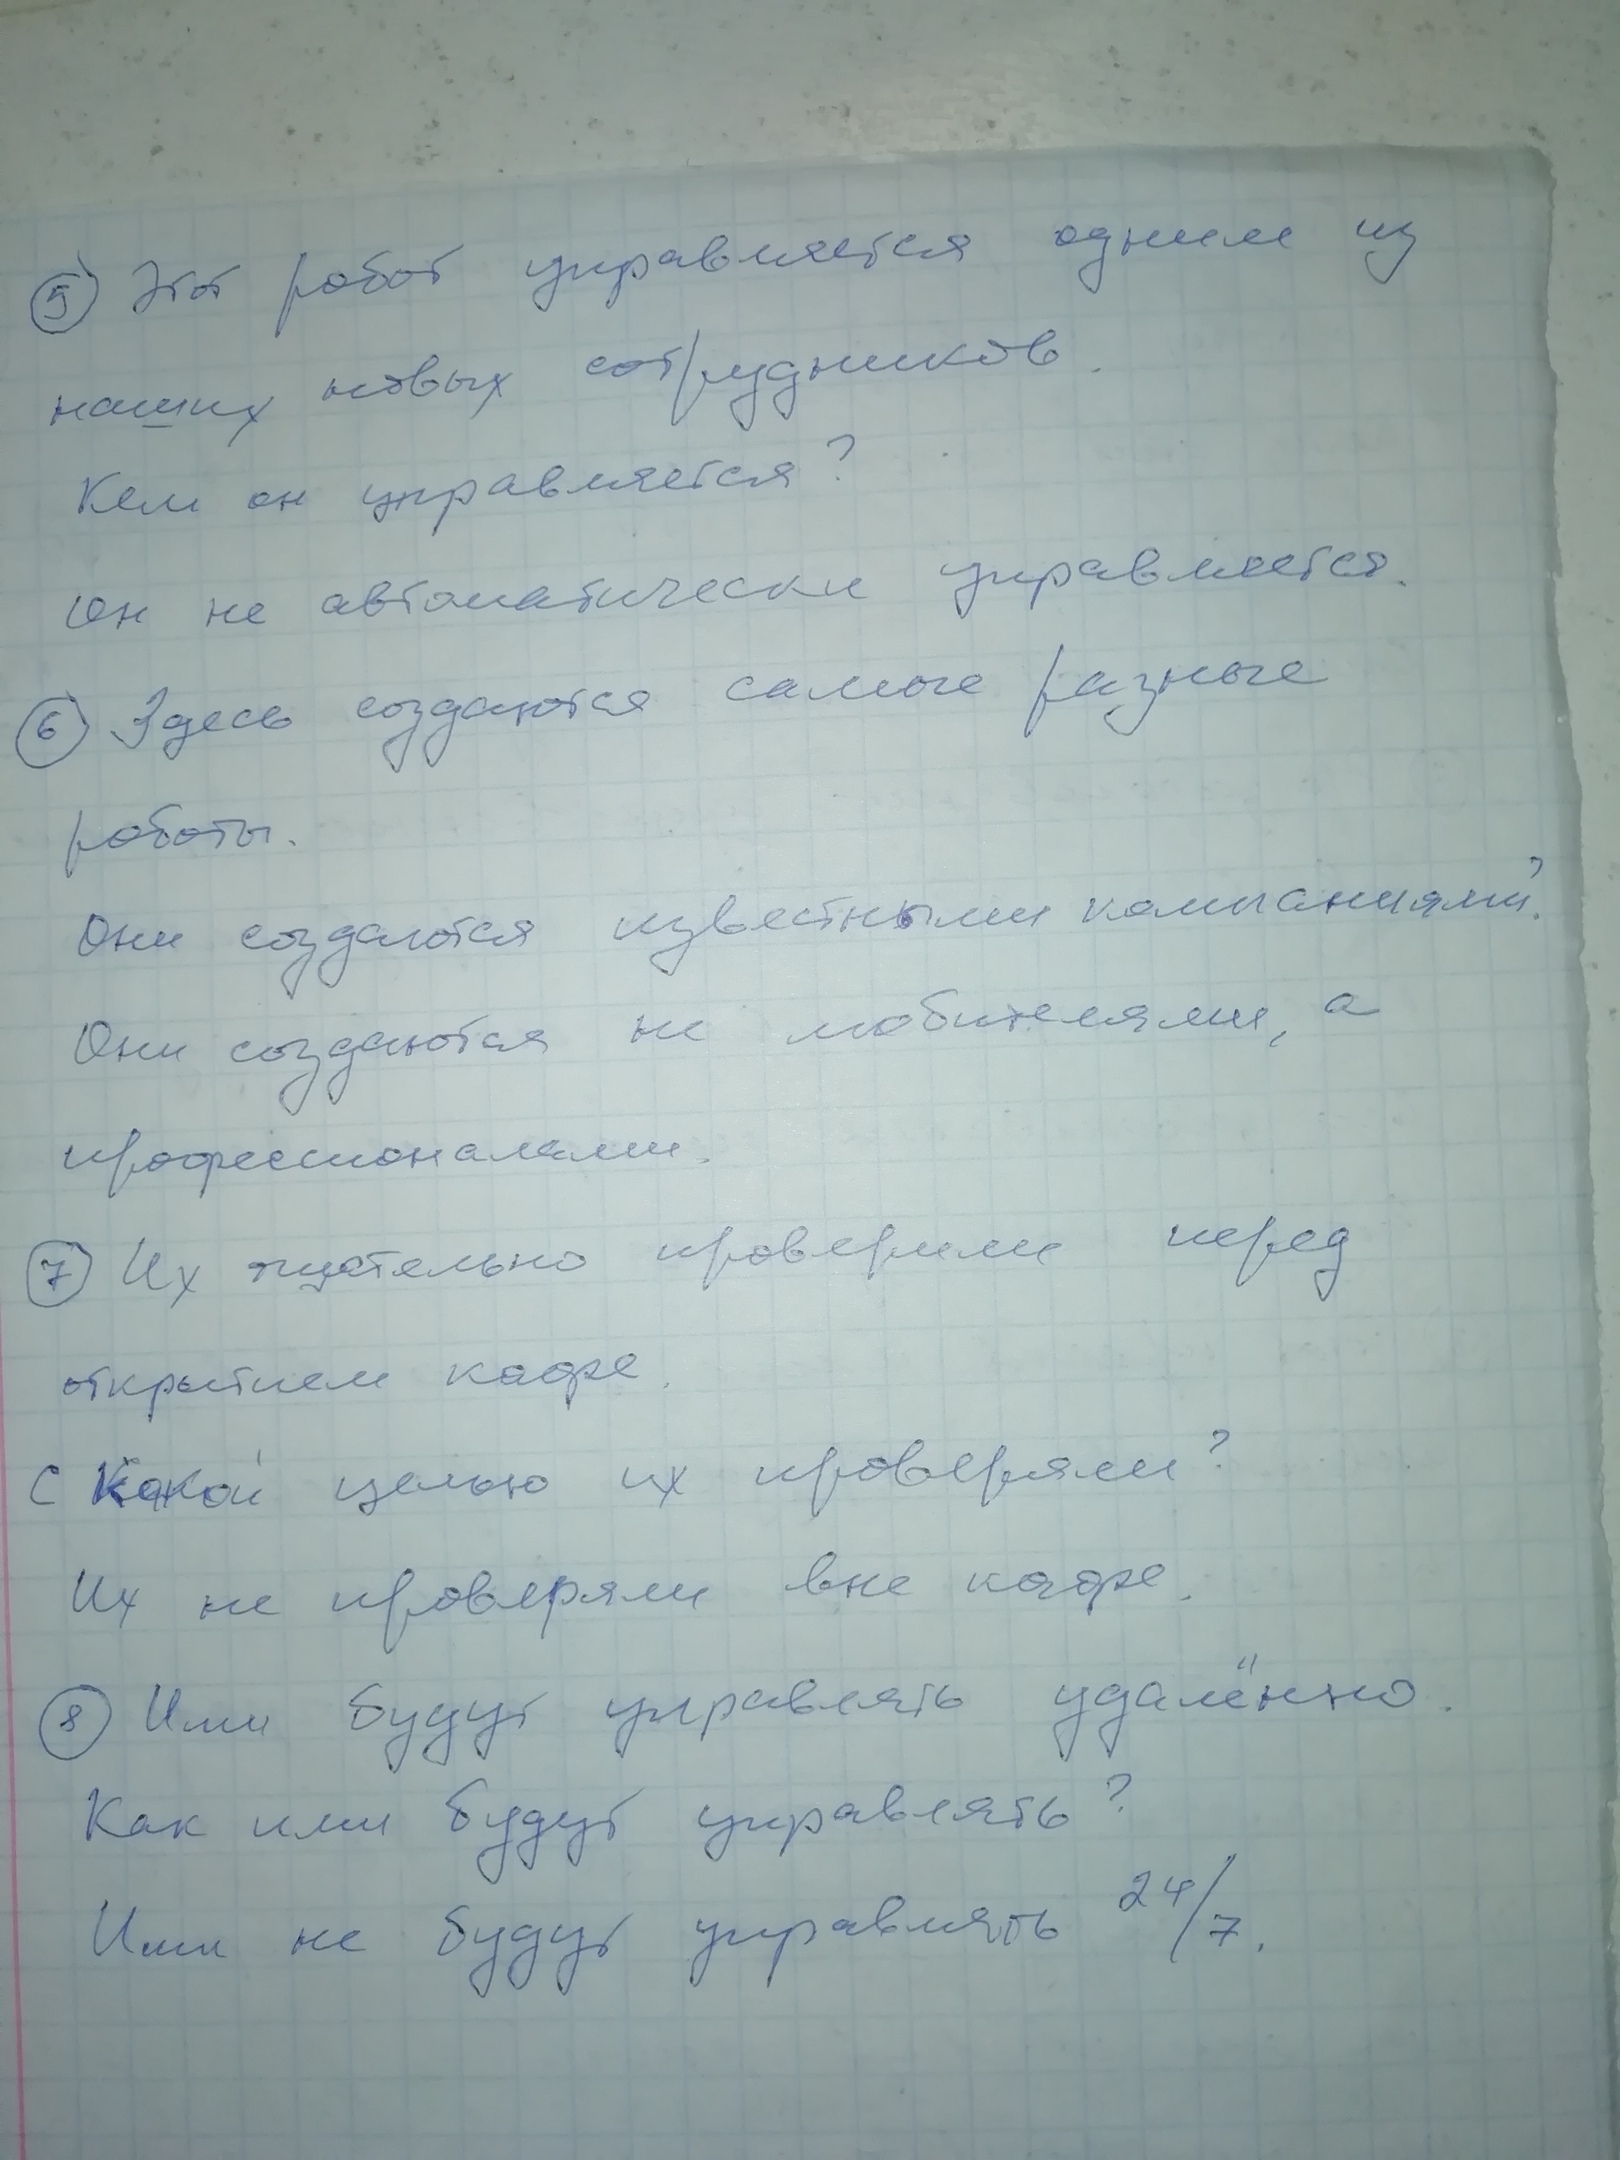 5) Этот робот управляется одним из
наших новых сотрудников.
Кем он управляется?
Он не автоматически управляется.
6) Здесь создаются самые разные
роботы.
Они создаются известными компаниями?
Они создаются не любителями, а
профессионалами.
7) Их тщательно проверили перед
открытием кафе.
С какой целью их проверяли?
Их не проверяли вне кафе.
8) Ими будут управлять удалённо.
Как ими будут управлять?
Ими не будут управлять 24/7.